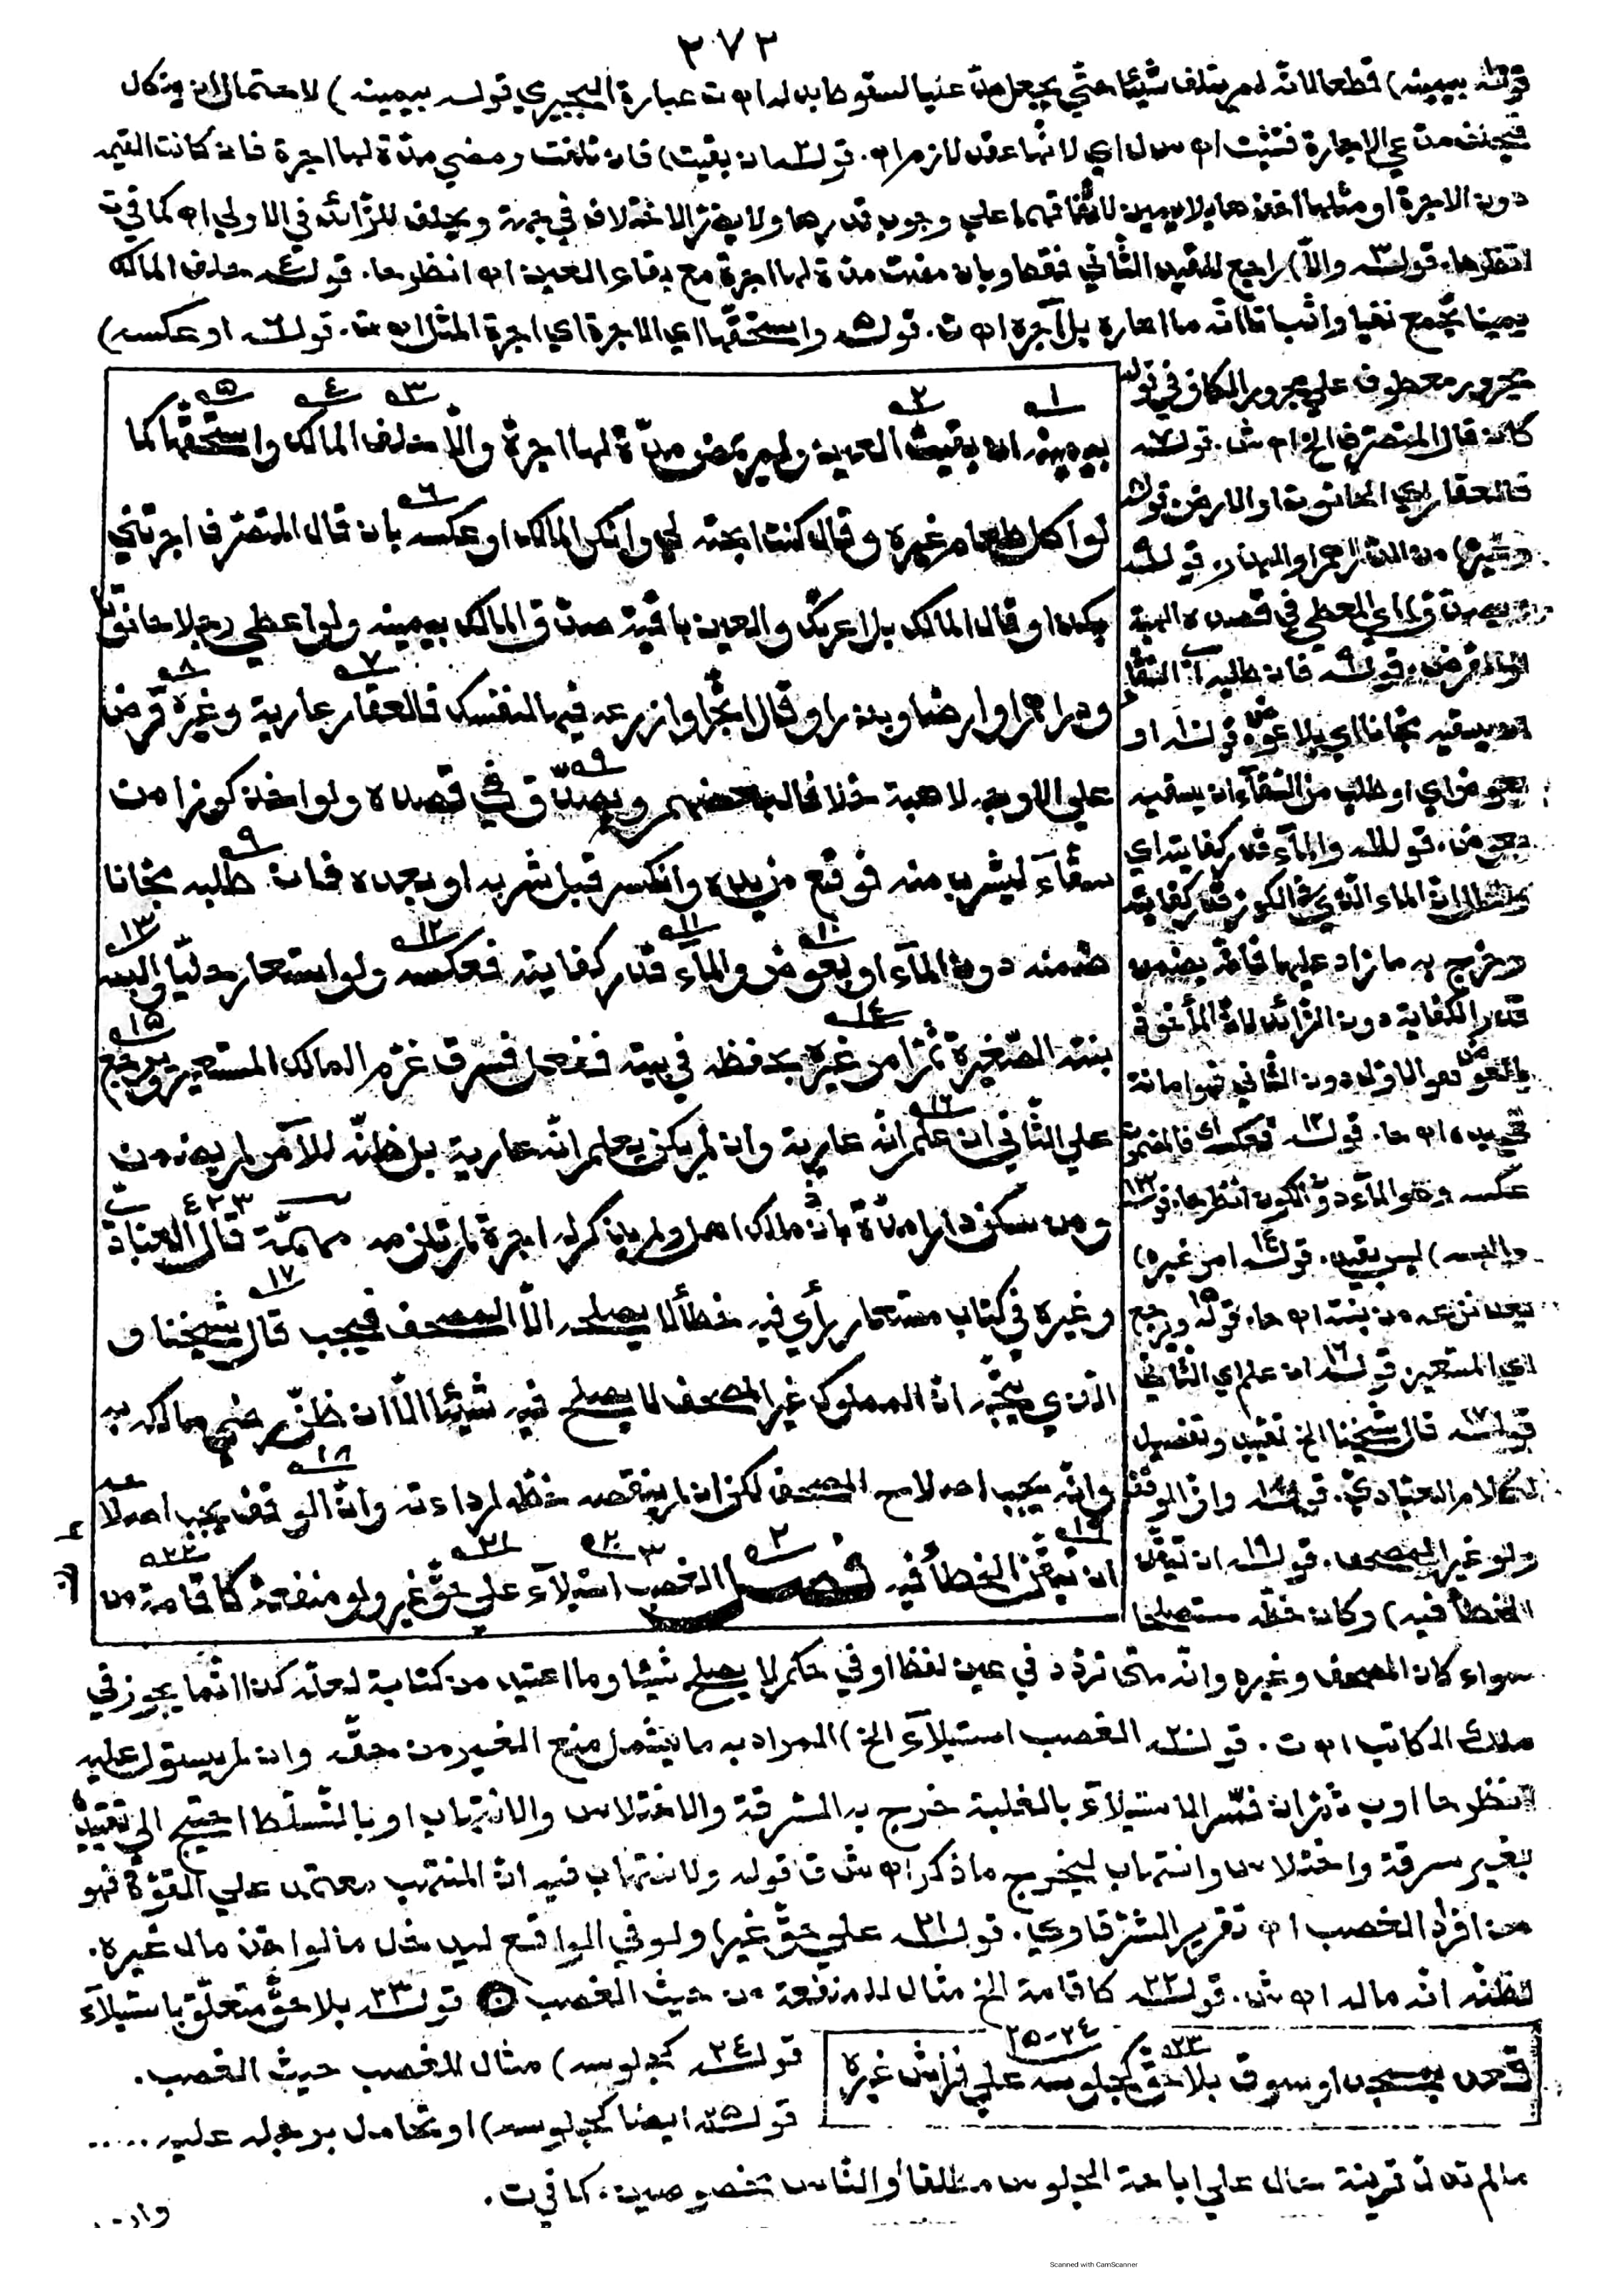 ٢٧٢
قوله بيمينه) قطعا لانه لم يتلف شيئا حتى يجعل مدعيا لسقوط بدله اه ت عبارة البجيرمي قوله بيمينه) لاحتمال ان ينكل
فيحلف مدعي الاجارة فتثبت اه س ل اي لانها عقد لازم اه. قوله ان بقيت) فان تلفت ومضي مدة لها اجرة فان كانت القيمة
دون الاجرة او مثلها اخذها بلا يمين لاتفاقهما علي وجوب قدرها ولا يضر الاختلاف في جهة ويحلف للزائد في الاولي اه كما في ت
انظرها. قوله والا) راجع للقيد الثاني فقط وبان مضت مدة لها اجرة مع بقاء العين اه انظر حا. قوله حلف المالك
يمينا تجمع نفيا واثباتا انه ما اعاره بل آجره اه ت. قوله واستحقها اي الاجرة اي اجرة المثل اه ت. قوله او عكسه)
مجرور معطوف علي مجرور الكاف في قوله
كان قال المتصرف الخ اه ش. قوله
فالعقار اي الحانوت او الارض قوله
وغيره) من الدراهم او البذر. قوله
ويصدق) اي المعطي في قصده الهبة
او القرض. قوله فان طلبه
ان يسقيه مجانا اي بلا عوض قوله او
بعوض اي او طلب من السقاء ان يسقيه
بعوض. قوله والماء قدر كفايته اي
والحال ان الماء الذي في الكوز قدر كفايته
وخرج به ما زاد عليها فانه يضمن
قدر الكفاية دون الزائد لان المأخوذ
بالعوض هو الاول دون الثاني فهو امانة
في يده اه حا. قوله فعكسه اي فالمضمون
عكسه وهو الماء دون الكوز انظر حا. قوله
والبسه) ليس بقيد. قوله امر غيره)
بعد نزعه من بنته اه حا. قوله ويرجع
اي المستعير قوله ان علم اي الثاني
قوله قال شيخنا الخ تقييد وتفصيل
لكلام العبادي. قوله وان الوقف
ولو غير المصحف. قوله ان تيقن
الخطأ فيه) وكان خطه مستصلحا
١ ٢ ٣ ٤ ٥
بيمينه ان بقيت العين ولم يمض مدة لها اجرة والا حلف المالك واستحقها كما
٦
لو اكل طعام غيره وقال كنت ابحته لي وانكر المالك او عكسه بان قال المتصرف اجرتني
بكذا وقال المالك بل اعرتك والعين باقية صدق المالك بيمينه ولو اعطي رجلا حانوتا
٧ ٨
ودراهم او ارضا وبذرا وقال اتجر او ازرعه فيها لنفسك فالعقار عارية وغيره قرض
٩
علي الاوجه لا هبة خلافا لبعضهم ويصدق في قصده ولو اخذ كوزا من
٩
سقاء ليشرب منه فوقع من يده وانكسر قبل شربه او بعده فان طلبه مجانا
١٠ ١١ ١٢ ١٣
ضمنه دون الماء او بعوض والماء قدر كفايته فعكسه ولو استعار حليا والبسه
١٤ ١٥
بنته الصغيرة ثم امر غيره بحفظه في بيته ففعل فسرق غرم المالك المستعير ويرجع
١٦
علي الثاني ان علم انه عارية وان لم يكن يعلم انه عارية بل ظنه للآمر لم يضمن
ومن سكن دارا مدة باذن مالك اهل ولم يذكر له اجرة لم تلزمه مهمة قال العبادي
١٧
وغيره في كتاب مستعار رأي فيه خطأ لا يصلحه الا المصحف فيجب قال شيخنا و
الذي يتجه ان المملوك غير المصحف لا يصلح فيه شيئا الا ان ظن رضي مالكه به
١٨
وانه يجب اصلاح المصحف لكن ان لم ينقصه خطه لرداءته وان الوقف يجب اصلاحه
١٩ ٢٠ ٢١ ٢٢
ان تيقن الخطأ فيه فصل الغصب استيلاء علي حق غير ولو منفعة كاقامة من
سواء كان المصحف وغيره وانه متى تردد في عين لفظ او في حكم لا يصلح شيئا وما اعتيد من كتابة لعله كذا انما يجوز في
ملك الكاتب اه ت. قوله الغصب استيلاء الخ) المراد به ما يشمل منع الغير من حقه وان لم يستول عليه
انظر حا او ب ثم ان فسر الاستيلاء بالغلبة خرج به السرقة والاختلاس والانتهاب او بالتسلط احتيج الي تقييده
بغير سرقة واختلاس وانتهاب ليخرج ما ذكر اه ش ق قوله والانتهاب فيه ان المنتهب معتمد علي القوة فهو
من افراد الغصب اه تقرير الشرقاوي. قوله علي حق غير) ولو في الواقع ليدخل ما لو اخذ مال غيره.
لظنه انه ماله اه ش. قوله كاقامة الخ مثال للمنفعة من حيث الغصب قوله بلا حق متعلق باستيلاء
٢٣ ٢٤-٢٥
قعد بمسجد او سوق بلا حق كجلوسه علي فراش غيره
قوله كجلوسه) مثال للغصب حيث الغصب.
قوله ايضا كجلوسه) او تحامل برجله عليه .....
مالم تدل قرينة حال علي اباحة الجلوس مطلقا او لناس مخصوصين. كما في ت.
Scanned with CamScanner